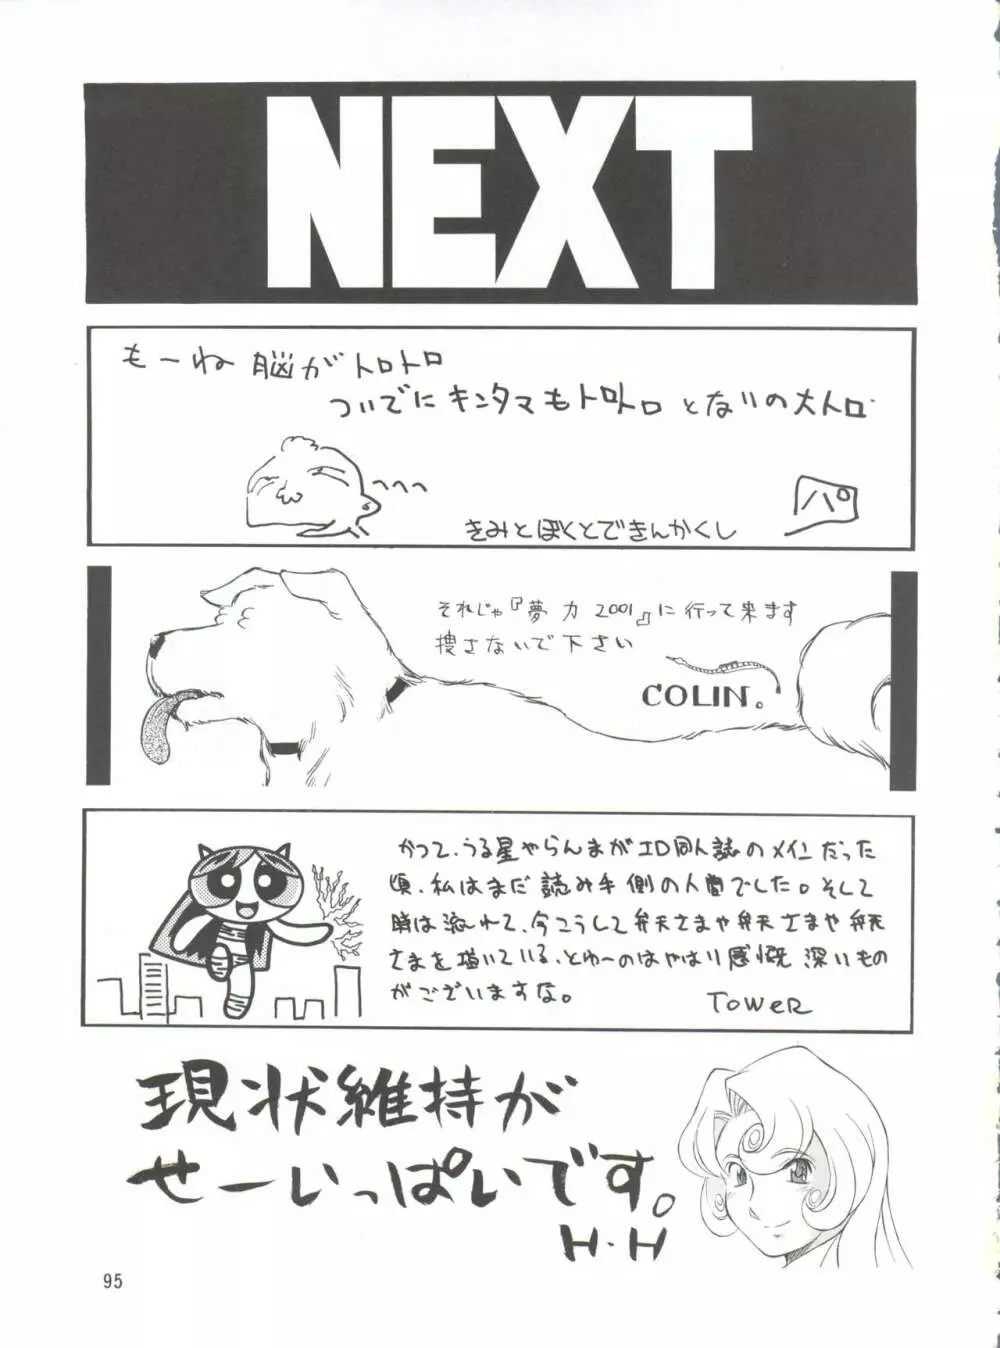 NEXT
もーね 脳がトロトロ
ついでにキンタマもトロトロ とないの大トロ
きみとぼくとできんかくし
パ
それじゃ『夢力2001』に行って来ます
捜さないで下さい
COLIN。
かつて、うる星やらんまがエロ同人誌のメインだった
頃、私はまだ読み手側の人間でした。そして
時は流れて、今こうして弁天さまや弁天さまや弁天
さまを描いている、とゆーのはやはり感慨深いもの
がございますな。
TOWER
現状維持が
せーいっぱいです。
H・H
95